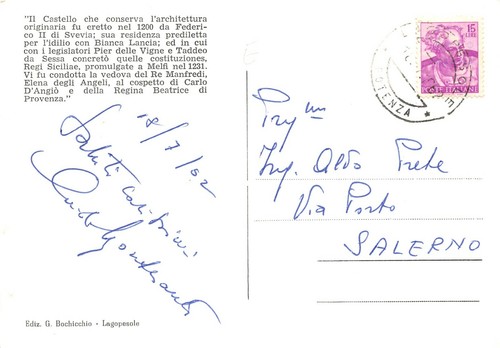 "Il Castello che conserva l'architettura
originaria fu cretto nel 1200 da Federi-
co II di Svevia; sua residenza prediletta
per l'idilio con Bianca Lancia; ed in cui
con i legislatori Pier delle Vigne e Taddeo
da Sessa concretò quelle costituzioni,
Regi Siciliae, promulgate a Melfi nel 1231.
Vi fu condotta la vedova del Re Manfredi,
Elena degli Angeli, al cospetto di Carlo
D'Angiò e della Regina Beatrice di
Provenza."
18/7/62
Saluti carissimi
Guido
Ediz. G. Bochicchio - Lagopesole
15
LIRE
POTENZA
Ing. Aldo Prete
Via Porto
SALERNO